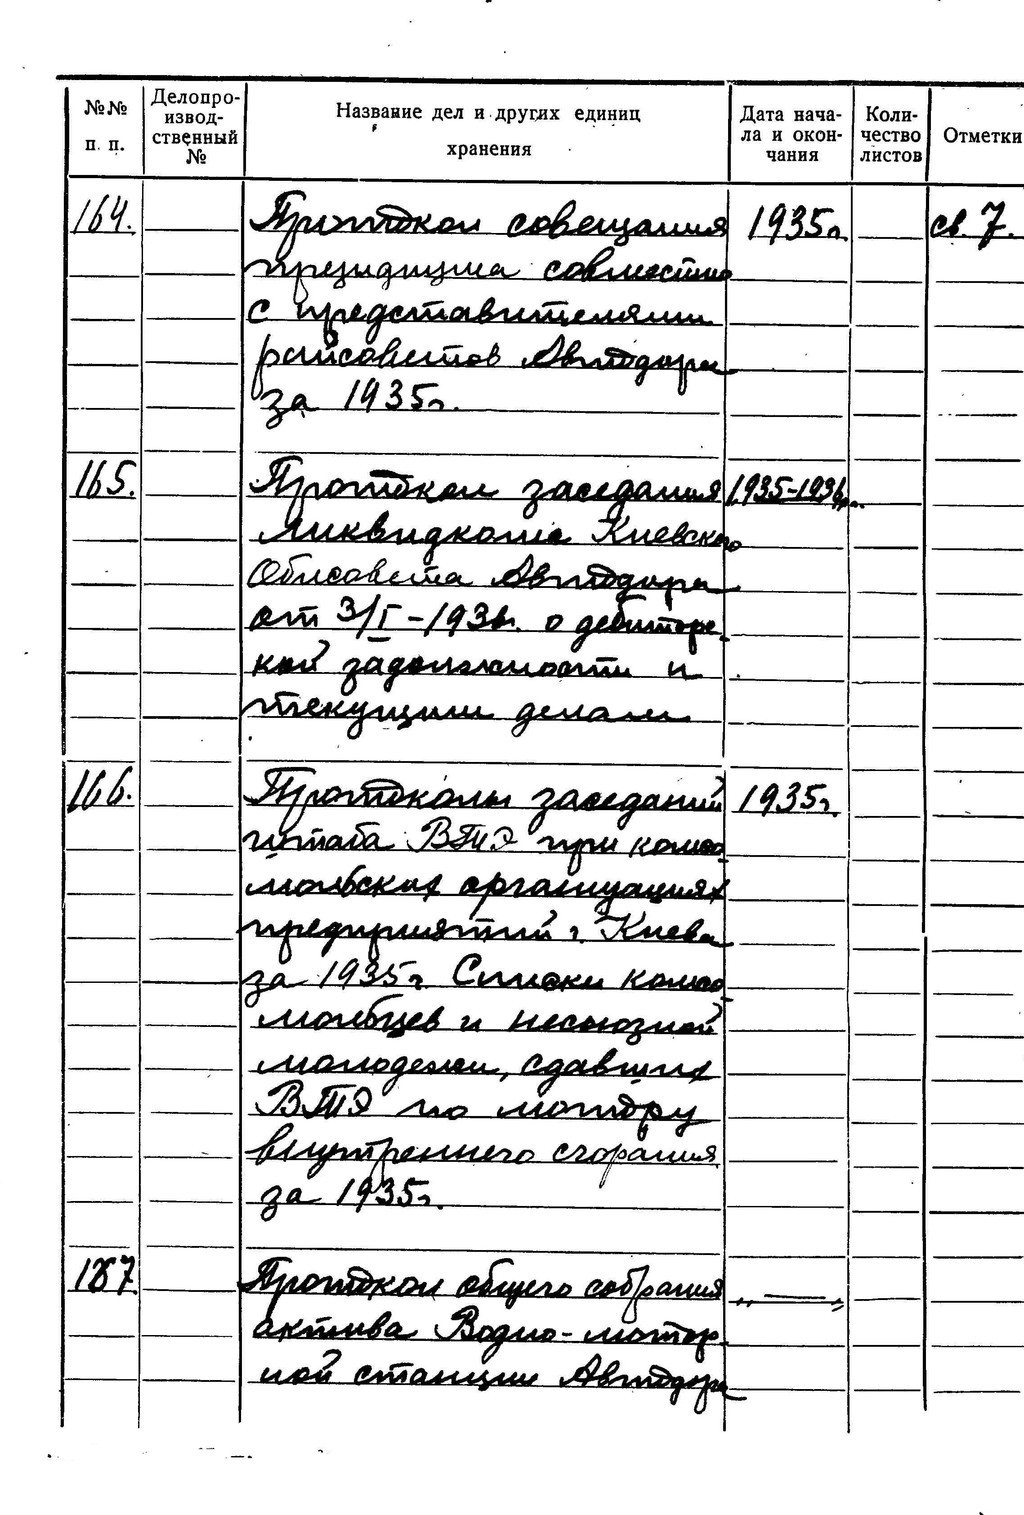 №№ п. п.
Делопро-
извод-
ственный
№
Название дел и других единиц
хранения
Дата нача-
ла и окон-
чания
Коли-
чество
листов
Отметки
164. Протокол совещания 1935г. св. 7.
президиума совместно
с представителями
райсоветов Автодора
за 1935г.
165. Протокол заседания 1935-1936гг.
ликвидкома Киевского
Облсовета Автодора
от 3/I-1936г. о дебиторс-
кой задолжности и
текущим делам
166. Протоколы заседаний 1935г.
штаба ВТЭ при комсо-
мольских организациях
предприятий г. Киева
за 1935г. Списки комсо-
мольцев и несоюзной
молодежи, сдавших
ВТЭ по мотору
внутреннего сгорания
за 1935г.
167. Протокол общего собрания „ — "
актива Водно-мотор-
ной станции Автодора